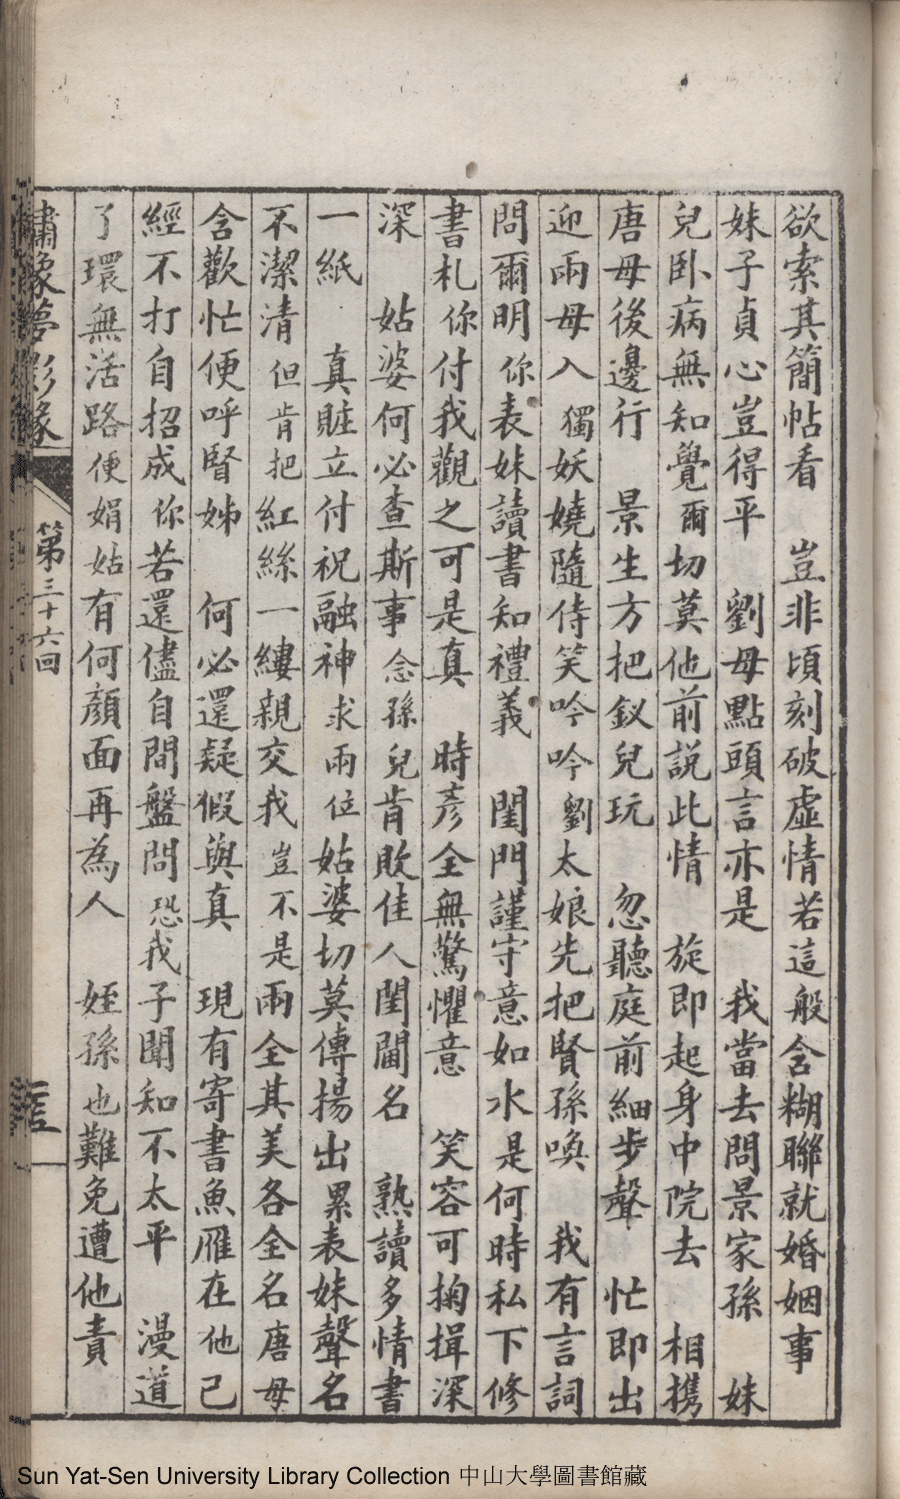 欲索其簡帖看　豈非頃刻破虛情若這般含糊聯就婚姻事
妹子貞心豈得平　劉母點頭言亦是　我當去問景家孫　妹
兒卧病無知覺爾切莫他前說此情　旋即起身中院去　相携
唐母後邊行　景生方把釵兒玩　忽聽庭前細步聲　忙即出
迎兩母入獨妖嬈隨侍笑吟吟劉太娘先把賢孫喚　我有言詞
問爾明你表妹讀書知禮義　閨門謹守意如水是何時私下修
書札你付我觀之可是真　時彥全無驚懼意　笑容可掬揖深
深　姑婆何必查斯事念孫兒肯敗佳人閨閫名　熟讀多情書
一紙　真賍立付祝融神求兩位姑婆切莫傳揚出累表妹聲名
不潔清但肯把紅絲一縷親交我豈不是兩全其美各全名唐母
含歡忙便呼賢姊　何必還疑假與真　現有寄書魚雁在他已
經不打自招成你若還儘自間盤問恐我子聞知不太平　漫道
了環無活路便娟姑有何顏面再為人　姪孫也難免遭他責
繡像夢影緣
第三十六回